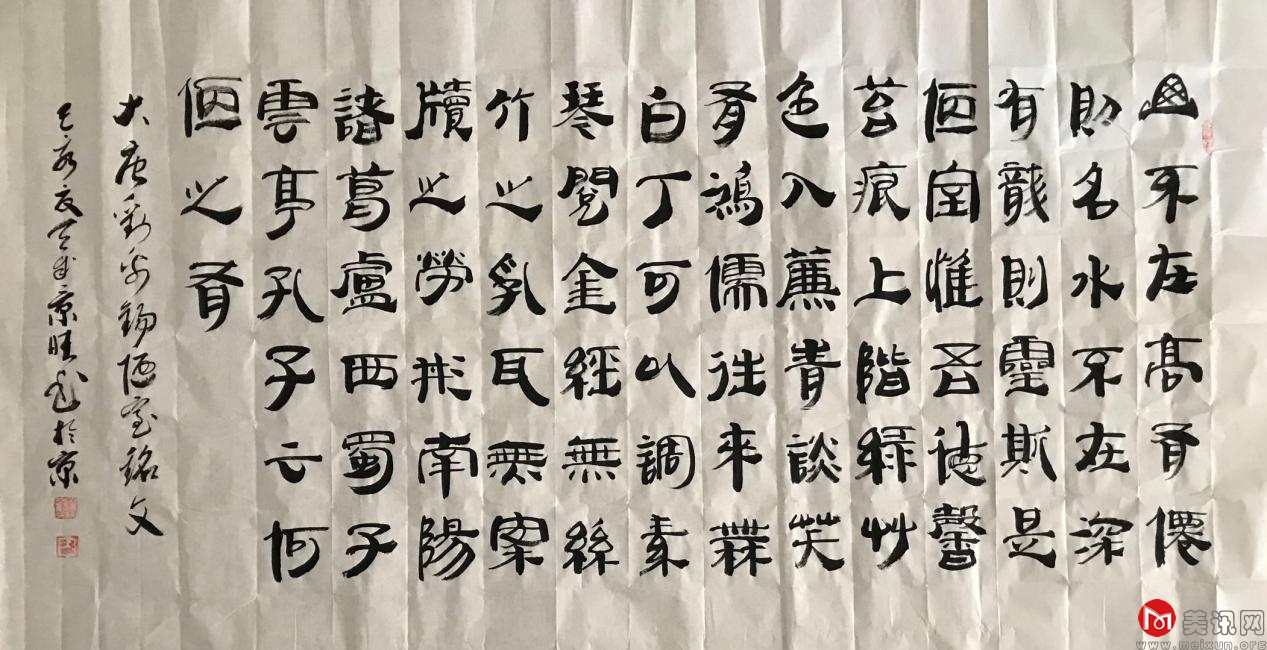 山不在高有僊
則名水不在深
有龍則靈斯是
陋室惟吾德馨
苔痕上階綠艸
色入薕青談笑
有鴻儒往來無
白丁可以調素
琴閱金經無絲
竹之亂耳無案
牘之勞形南陽
諸葛盧西蜀子
雲亭孔子云何
陋之有
大唐劉禹錫陋室銘文
己亥夏景旺書於京
美讯网
www.meixun.org